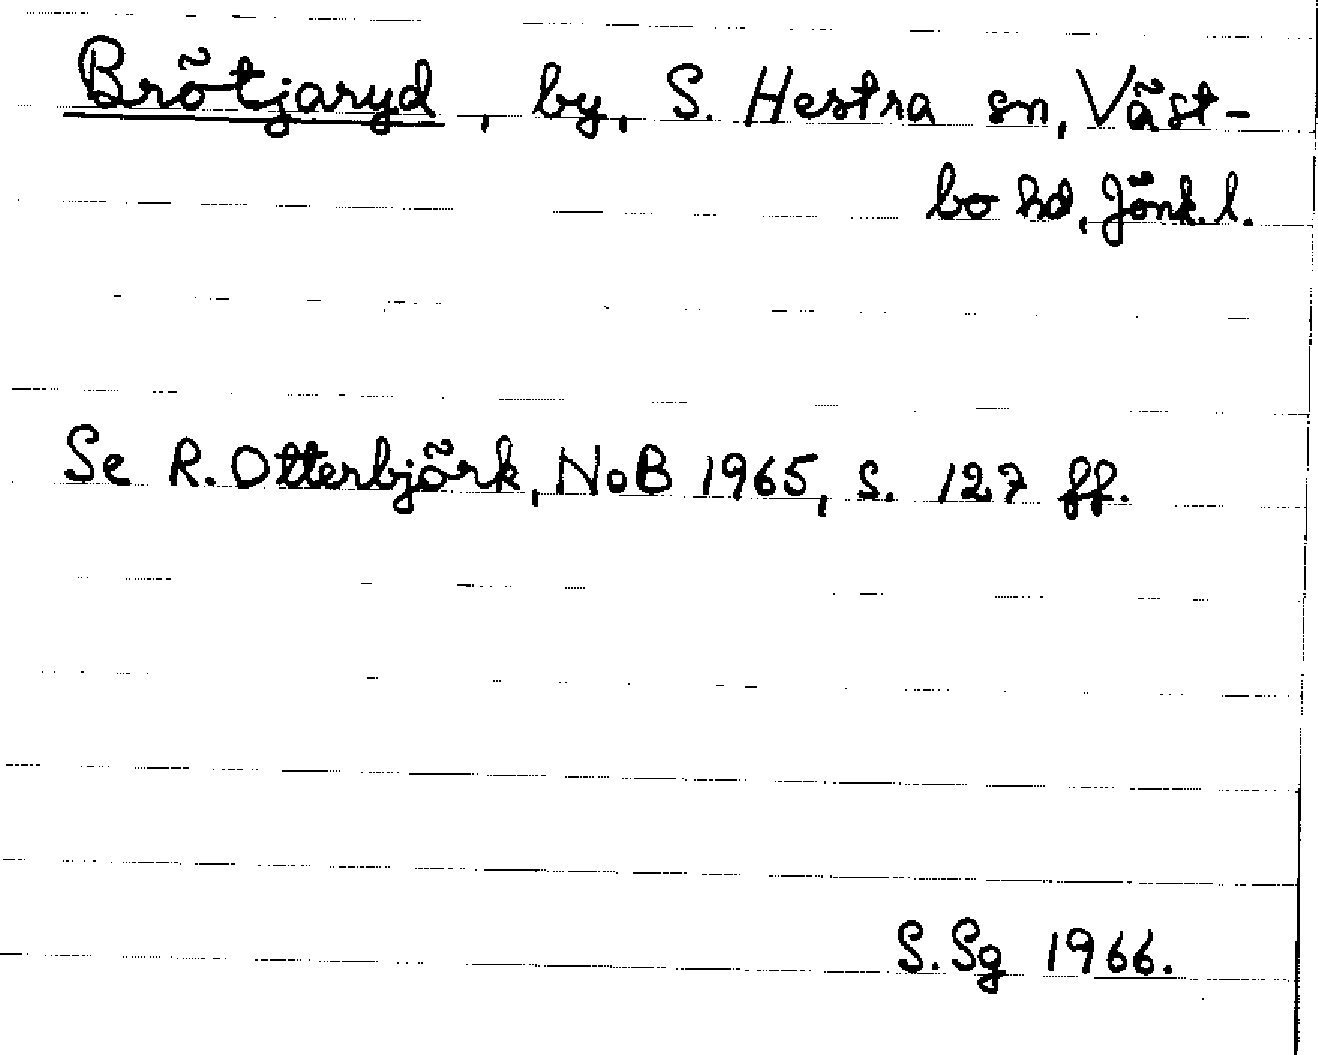 Brötjaryd, by, S. Hestra sn, Väst-
bo hd, Jönk. l.
Se R. Otterbjörk, NoB 1965, s. 127 ff.
S. Sg 1966.